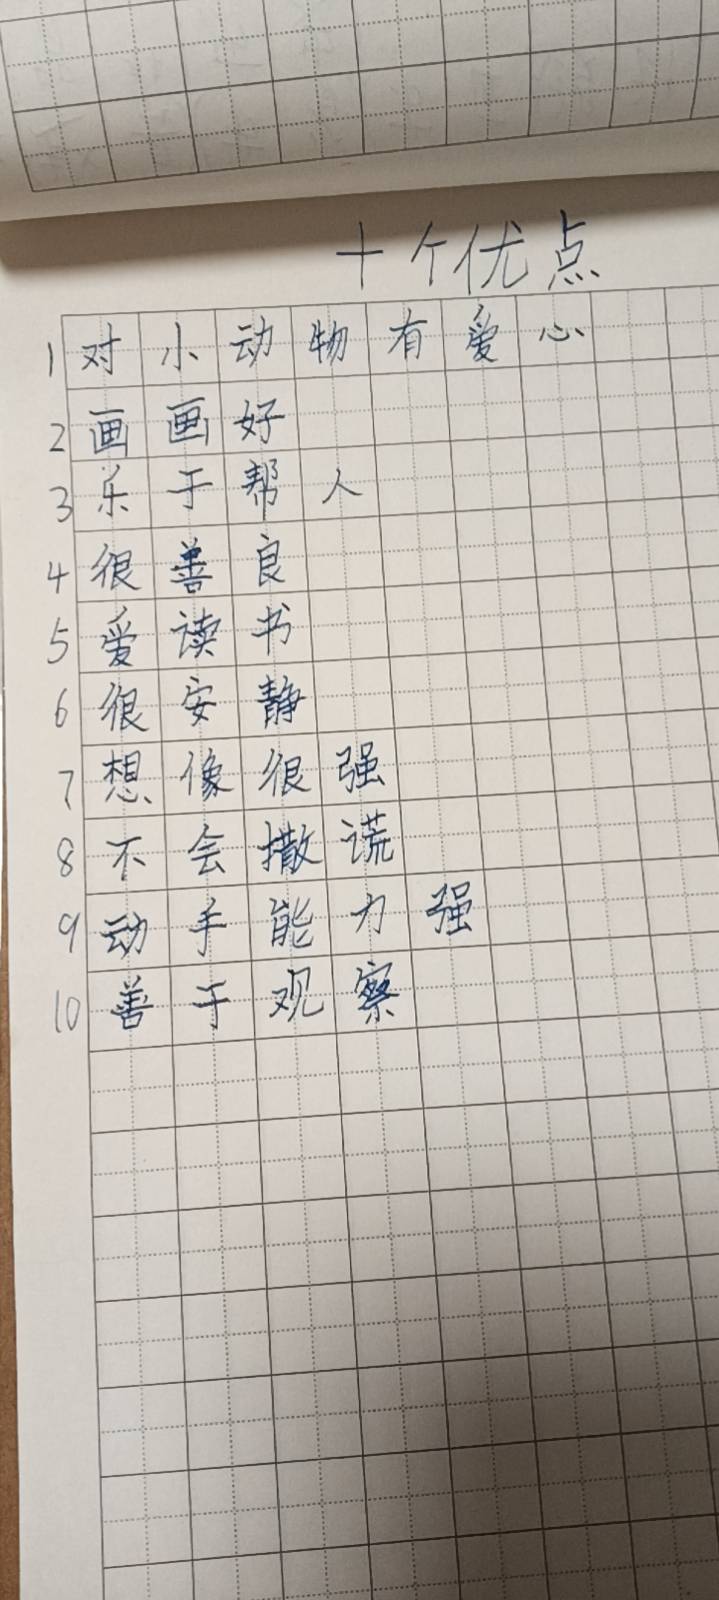 十个优点
1 对小动物有爱心
2 画画好
3 乐于帮人
4 很善良
5 爱读书
6 很安静
7 想像很强
8 不会撒谎
9 动手能力强
10 善于观察